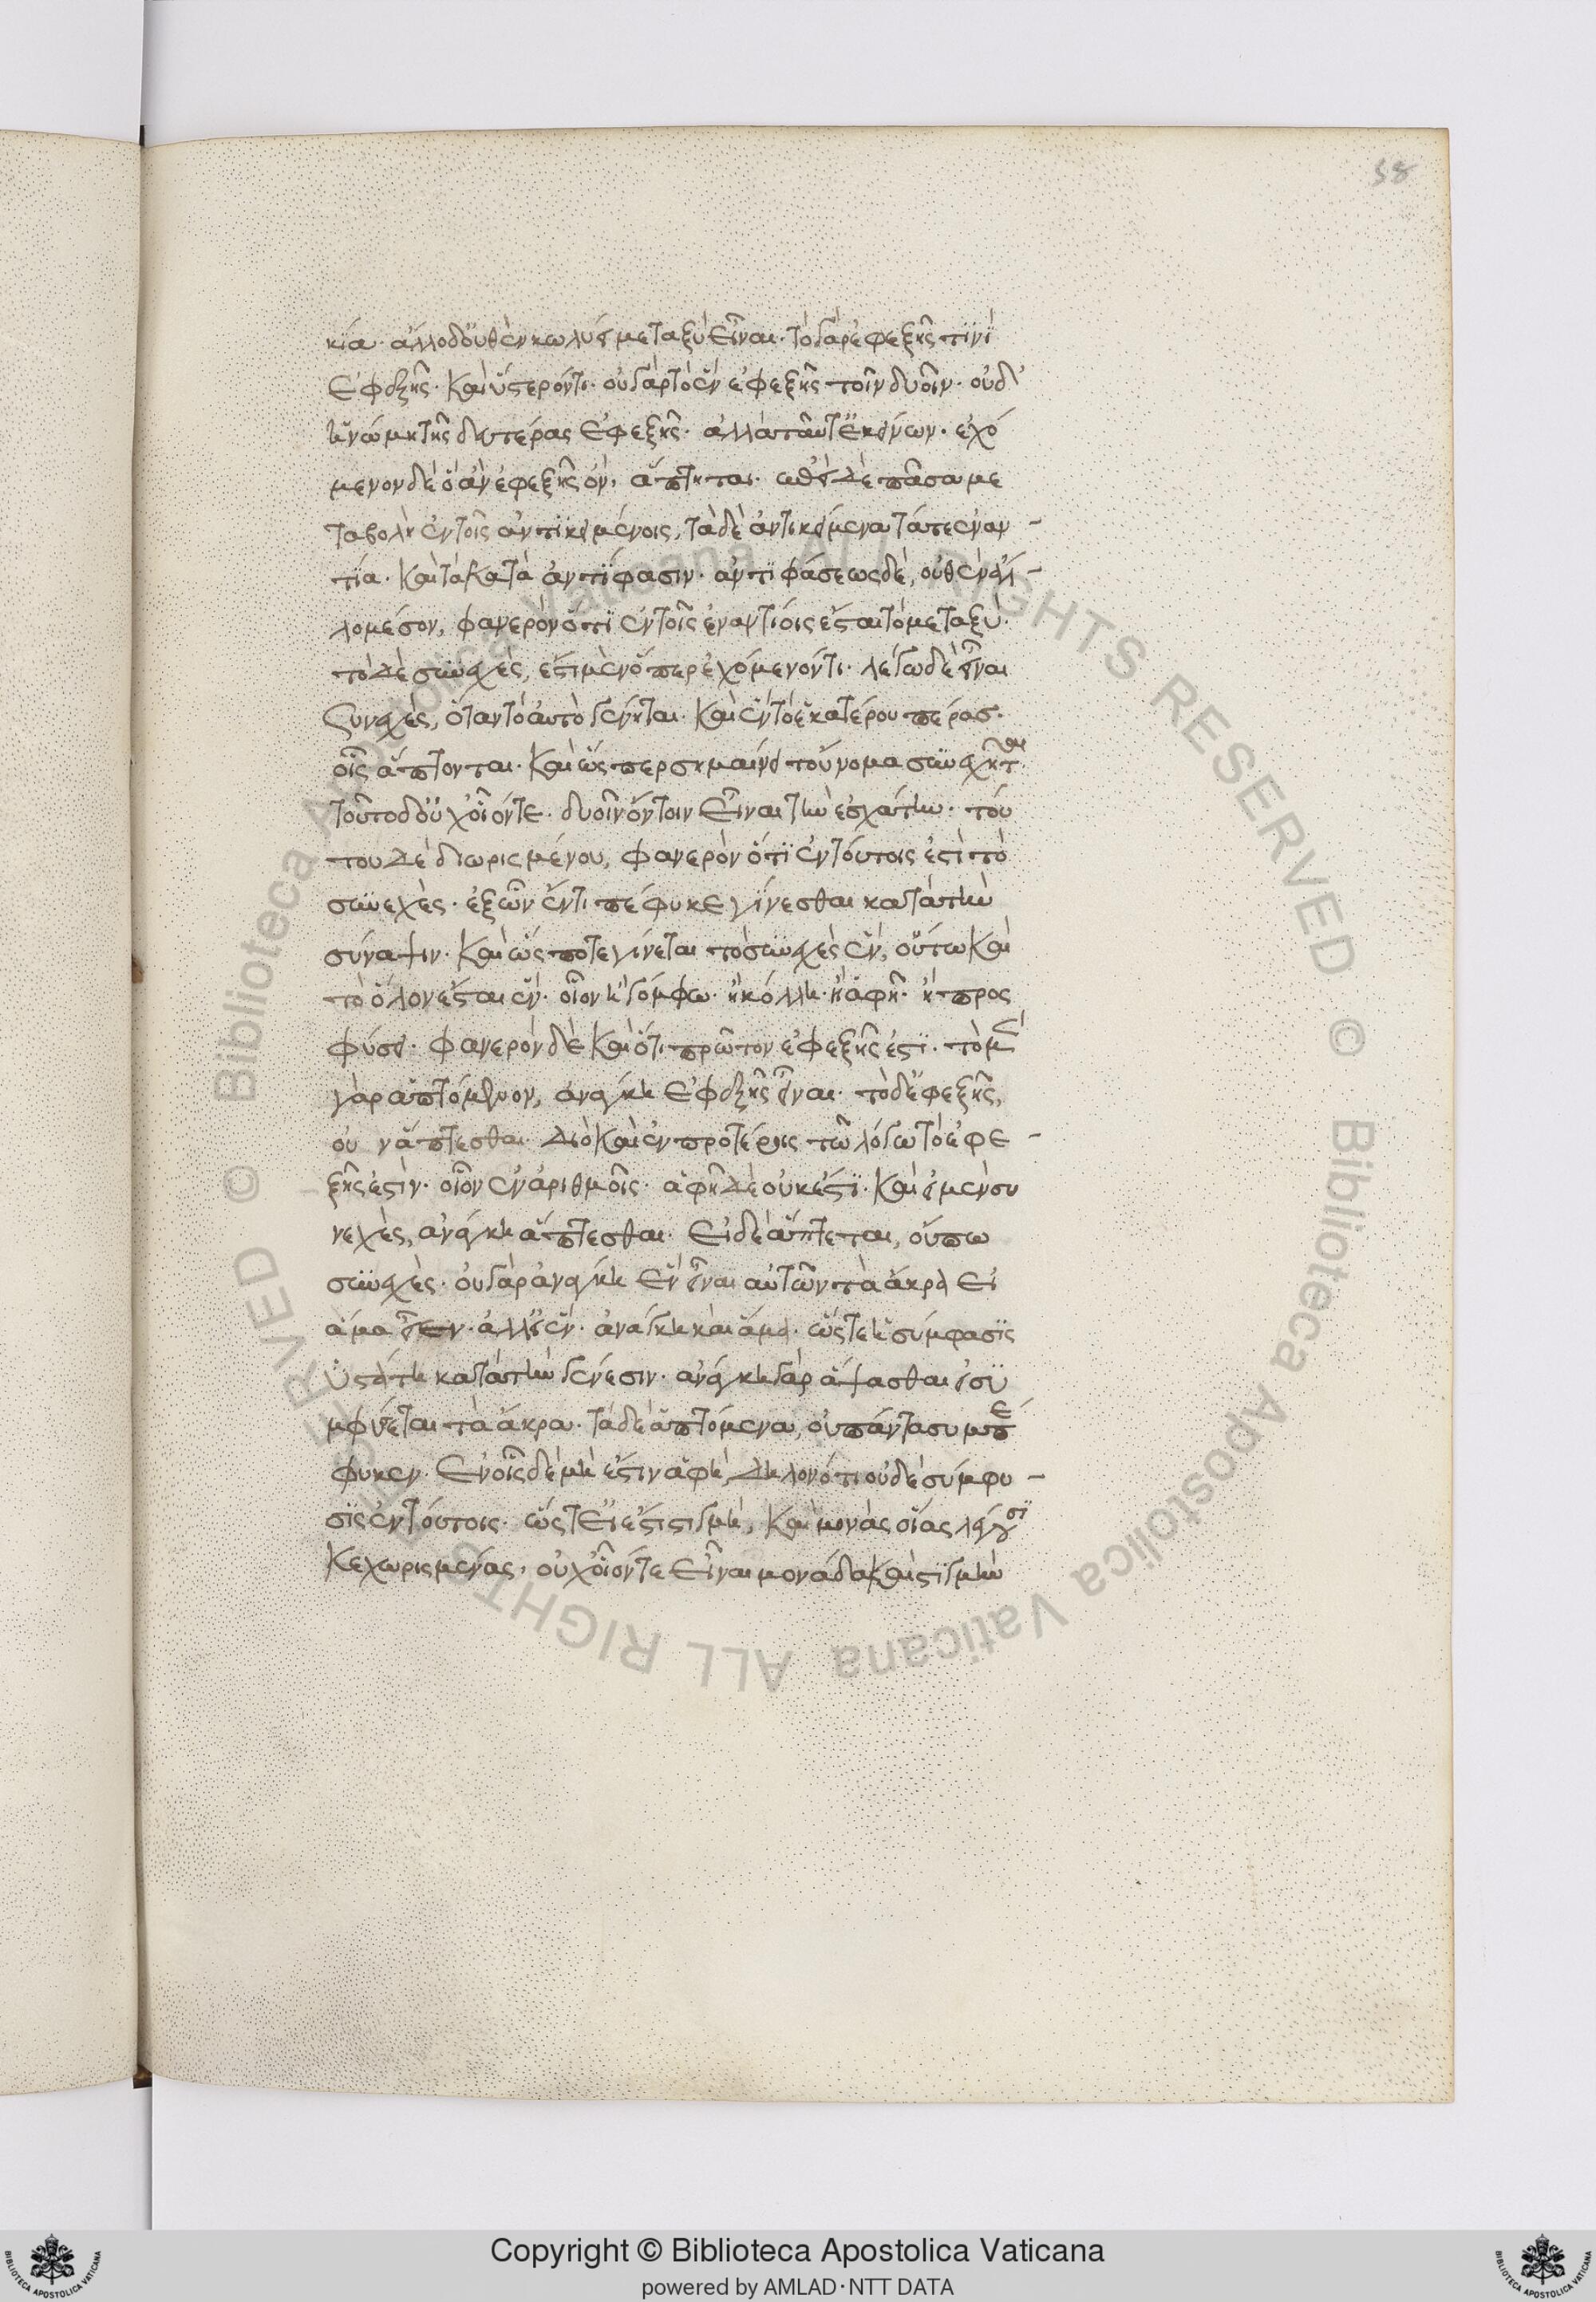 58
κία· ἄλλο δ' οὐθὲν κωλύει μεταξὺ εἶναι· τὸ γὰρ ἐφεξῆς τινὶ
ἐφεξῆς· καὶ ὕστερόν τι· οὐ γὰρ τὸ ἓν ἐφεξῆς τοῖν δυοῖν· οὐδ'
ἡ νουμηνία τῆς δευτέρας ἐφεξῆς· ἀλλὰ ταῦτ' ἐκείνων· ἐχό
μενον δὲ ὃ ἂν ἐφεξῆς ὂν, ἅπτηται. ἐπεὶ δὲ πᾶσα με
ταβολὴ ἐν τοῖς ἀντικειμένοις, τὰ δὲ ἀντικείμενα τά τε ἐναν -
τία· καὶ τὰ κατὰ ἀντίφασιν· ἀντιφάσεως δὲ, οὐθὲν ἀνὰ -
μέσον, φανερὸν ὅτι ἐν τοῖς ἐναντίοις ἔσται τὸ μεταξύ·
τὸ δὲ συνεχὲς, ἔστι μὲν ὅπερ ἐχόμενόν τι· λέγω δὲ εἶναι
συνεχὲς, ὅταν τὸ αὐτὸ γένηται· καὶ ἓν τὸ ἑκατέρου πέρας·
οἷς ἅπτονται· καὶ ὥσπερ σημαίνει τοὔνομα συνέχηται·
τοῦτο δ' οὐχ οἷόν τε· δυοῖν ὄντοιν εἶναι τοῖν ἐσχάτοιν· τού
του δὲ διωρισμένου, φανερὸν ὅτι ἐν τούτοις ἐστὶ τὸ
συνεχὲς· ἐξ ὧν ἕν τι πέφυκε γίνεσθαι κατὰ τὴν
σύναψιν· καὶ ὥς ποτε γίνεται τὸ συνέχον ἓν, οὕτω καὶ
τὸ ὅλον ἔσται ἕν· οἷον ἢ γόμφω· ἢ κόλλη· ἢ ἁφῆ· ἢ προς
φύσει· φανερὸν δὲ καὶ ὅτι πρῶτον ἐφεξῆς ἐστί· τὸ μὲν
γὰρ ἁπτόμενον, ἀνάγκη ἐφεξῆς εἶναι· τὸ δ' ἐφεξῆς,
οὐ νἅπτεσθαι· διὸ καὶ ἐν προτέροις τῶ λόγω τὸ ἐφε -
ξῆς ἐστίν· οἷον ἐν ἀριθμοῖς· ἁφὴ δὲ οὐκ ἔστι· καὶ εἰ μὲν συ
νεχὲς, ἀνάγκη ἅπτεσθαι· εἰ δὲ ἅπτεται, οὔπω
συνεχὲς· οὐ γὰρ ἀνάγκη ἓν εἶναι αὐτῶν τὰ ἄκρα εἰ
ἅμα εἶεν· ἀλλ' εἰ ἓν· ἀνάγκη καὶ ἅμα· ὥστε ἡ σύμφασις
ὑστάτη κατὰ τὴν γένεσιν· ἀνάγκη γὰρ ἅψασθαι εἰ συ
μφύεται τὰ ἄκρα· τὰ δὲ ἁπτόμενα, οὐ πάντα συμπέ
φυκεν· ἐν οἷς δὲ μή ἐστιν ἁφὴ, δηλονότι οὐδὲ σύμφυ -
σις ἐν τούτοις· ὥστ' εἰ ἔστι στιγμὴ, καὶ μονὰς οἵας λέγουσι
κεχωρισμένας, οὐχ οἷόν τε εἶναι μονάδα καὶ στιγμὴν
Copyright © Biblioteca Apostolica Vaticana
powered by AMLAD·NTT DATA